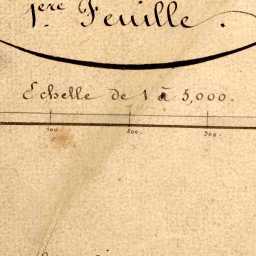 1ere Feuille.
Echelle de 1 à 5,000.
100. 200. 300.